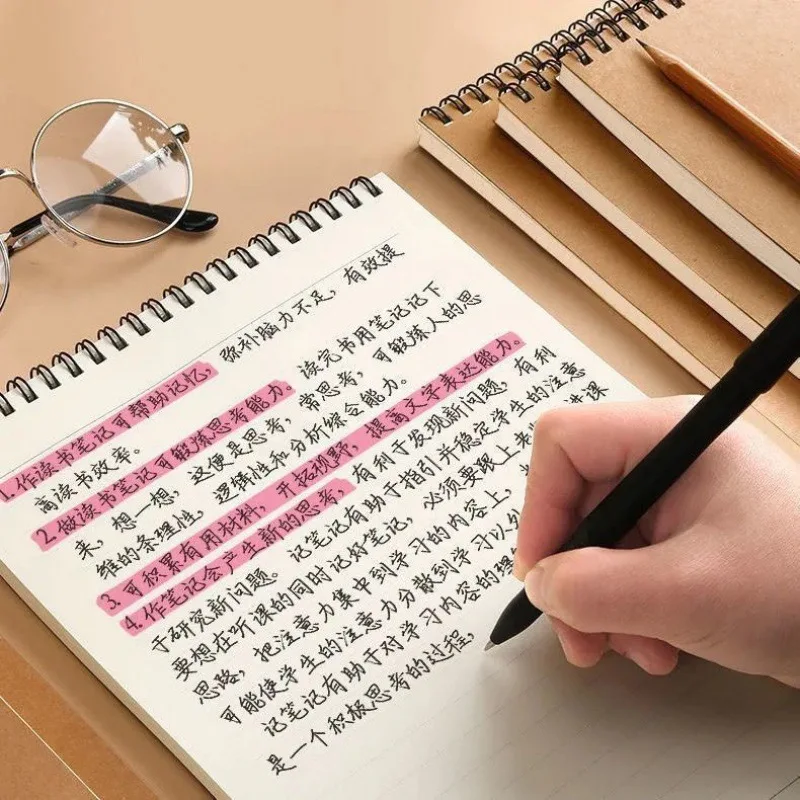 1.作读书笔记可帮助记忆,弥补脑力不足,有效提
高读书效率。
2.做读书笔记可锻炼思考能力。读完书用笔记记下
来,想一想,这便是思考,常思考,可锻炼人的思
维的条理性,逻辑性和分析综合能力。
3.可积累有用材料,开拓视野,提高文字表达能力。
4.作笔记会产生新的思考,有利于发现新问题,有利
于研究新问题。记笔记有助于指引并稳定学生的注意
要想在听课的同时记好笔记,必须要跟上老 讲课
思路,把注意力集中到学习的内容上,
可能使学生的注意力分散到学习以外
记笔记有助于对学习内容的理
是一个积极思考的过程,